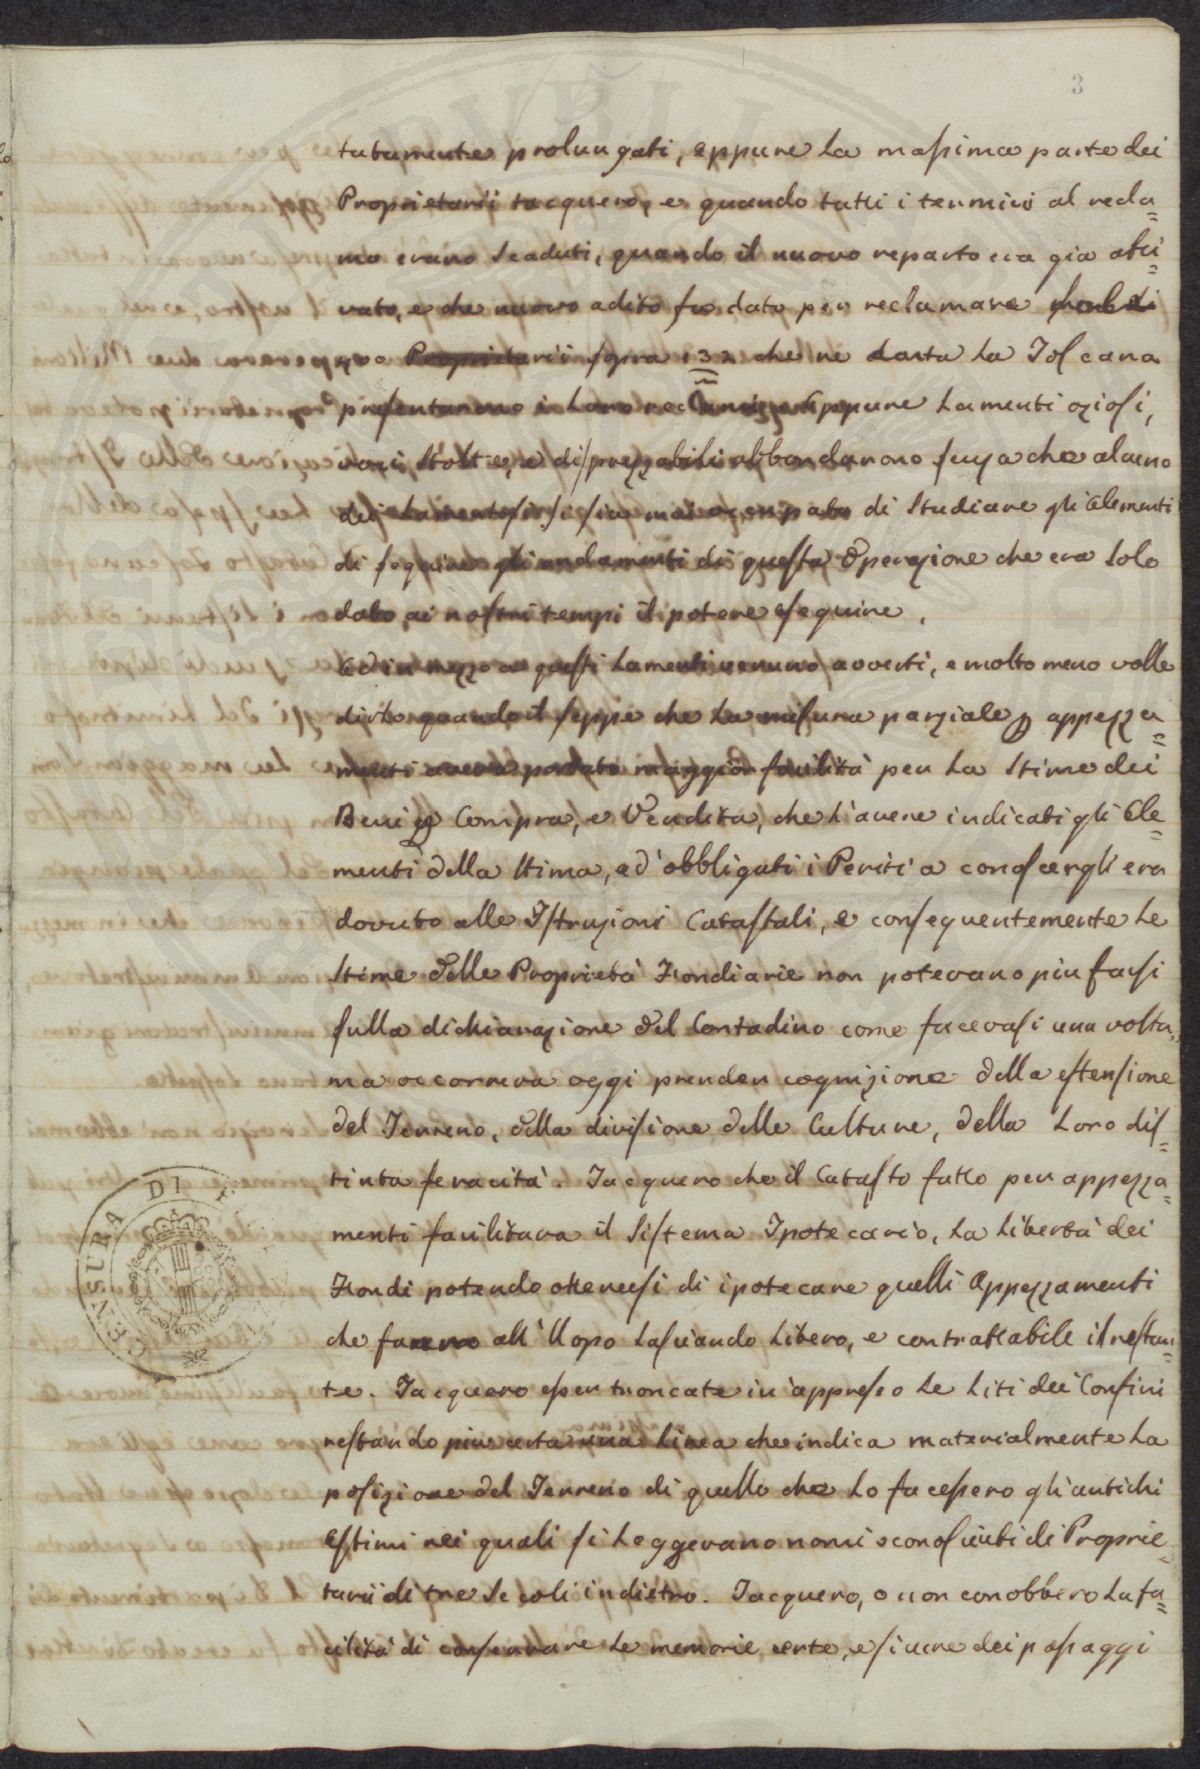 3
tutamente prolungati, eppure la massima parte dei
Proprietarii tacquero, e quando tutti i termini al recla=
mo erano scaduti, quando il nuovo reparto era già atti=
vato, e che nuovo adito fu dato per reclamare
Proprietarii sopra 132 che ne danta la Toscana
presentarono i loro reclami. Eppure lamenti oziosi,
voci stolte, e disprezzabili abbondarono senza che alcuno
dei lamentosi si sia mai occupato di studiare gli elementi
di seguire gli andamenti di questa Operazione che era solo
dato ai nostri tempi il potere eseguire.
Ed in mezzo a questi lamenti nenuno avvertì, e molto meno volle
dirlo quando il seppe che la misura parziale p appezza=
menti aveva portato maggior facilità per la stima dei
Beni p Compra, e Vendita, che l'avere indicati gli Ele=
menti della stima, ed obbligati i Periti a conoscergli era
dovuto alle Istruzioni Catastali, e conseguentemente le
stime delle Proprietà Fondiarie non potevano piu farsi
sulla dichiarazione del Contadino come facevasi una volta,
ma occorreva oggi prender cognizione della estensione
del Terreno, della divisione delle Culture, della loro dis=
tinta feracità. Tacquero che il Catasto fatto per appezza=
menti facilitava il sistema Ipotecario, la libertà dei
Fondi potendo ottenersi di ipotecare quelli Appezzamenti
che fanno all'Uopo lasciando libero, e contrattabile il restan=
te. Tacquero esser troncate in appresso le liti dei Confini
restando piu certa una linea che indica materialmente la
posizione del Terreno di quello che lo facessero gli antichi
Estimi nei quali si leggevano nomi sconosciuti di Proprie=
tarii di tre secoli indietro. Tacquero, o non conobbero la fa=
cilità di conservare le memorie certe, e sicure dei passaggi
CENSURA DI